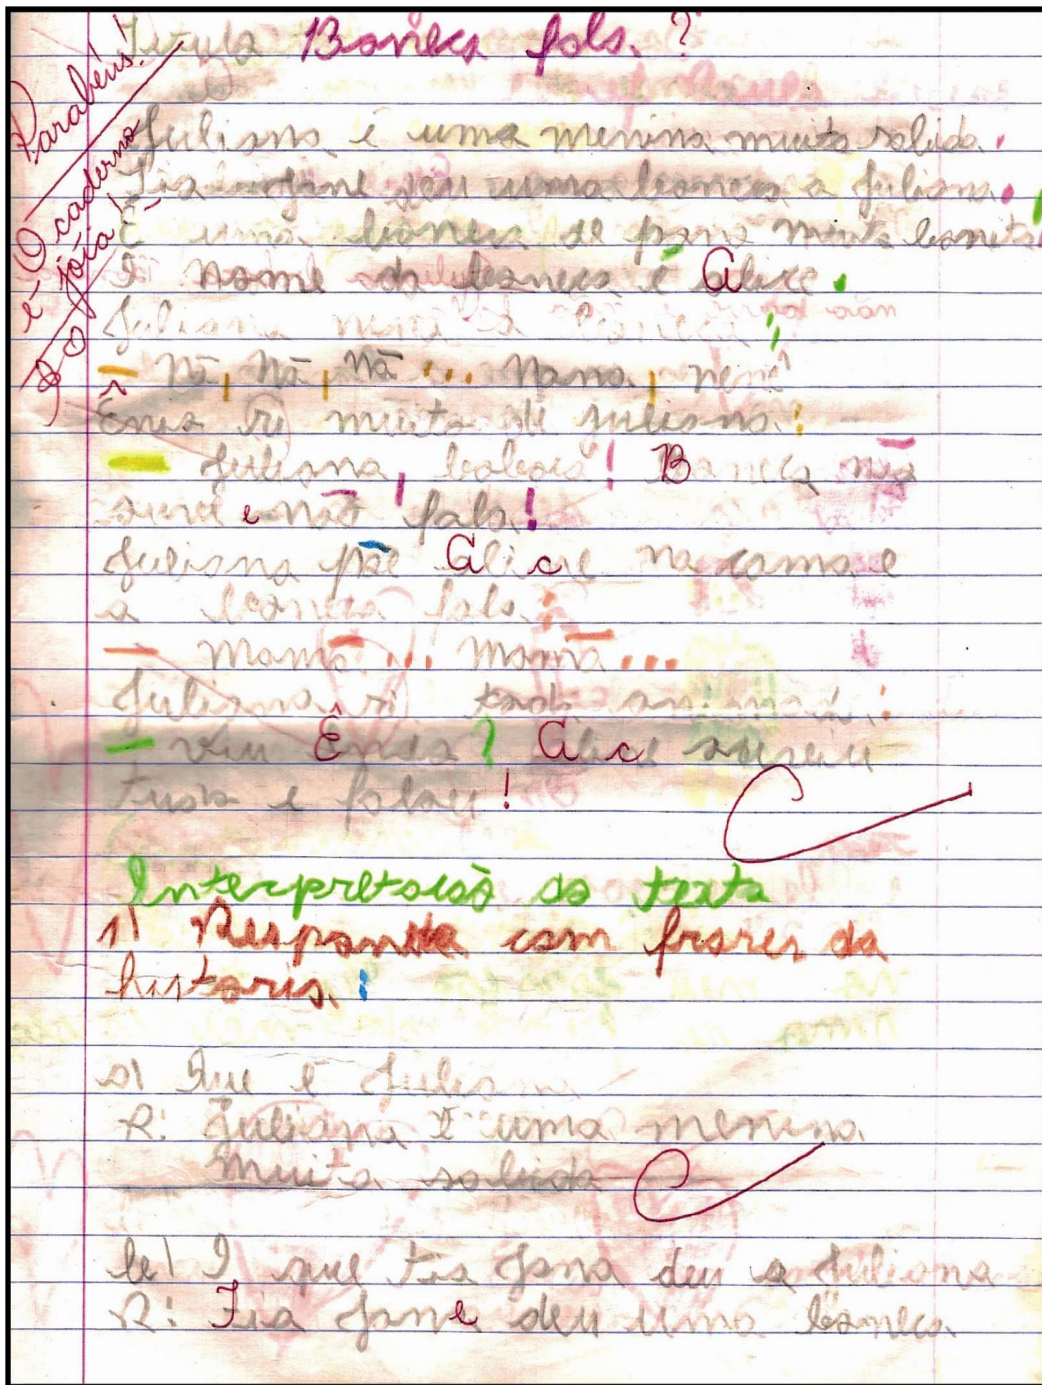 Titulo Boneca fala ?
Parabéns!
O caderno
é jóia!
Juliana é uma menina muito sabida.
Tia Jane deu uma boneca a Juliana.
É uma boneca de pano muito bonita
O nome da boneca é Alice.
Juliana nina a boneca:
— Nã, nã, nã ... Nana, nenê
Ênia ri muito de Juliana:
— Juliana, boboca! Boneca não
ouve e não fala!
Juliana põe Alice na cama e
a boneca fala:
— Mamã ... Mamã ...
Juliana ri toda
— Viu Ênia? Alice ouviu
tudo e falou!
Interpretação do texto
1) Responda com frases da
historia:
a) Que é Juliana
R: Juliana É uma menina
muito sabida
b) O que tia Jana deu a Juliana
R: Tia Jane deu uma boneca